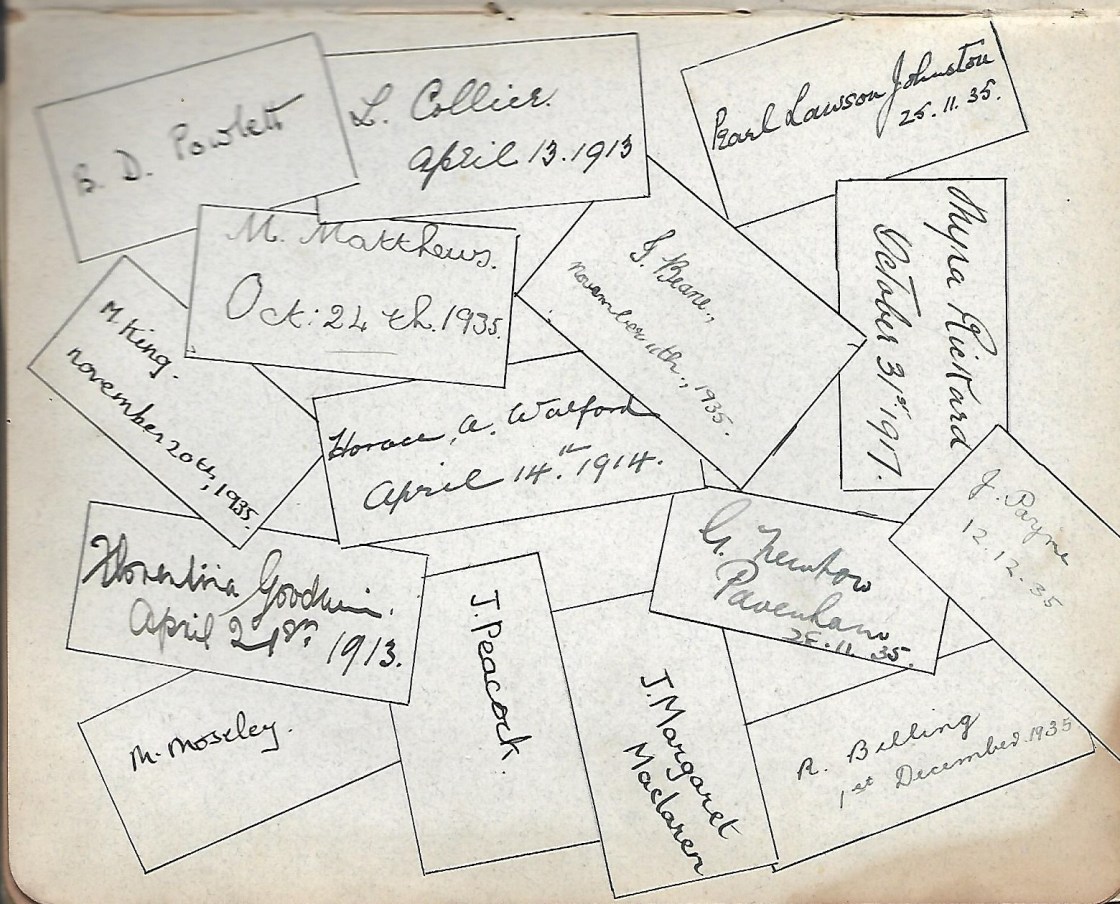 B. D. Powlett
L. Collier.
April 13. 1913
Pearl Lawson Johnston
25. 11. 35.
M. Matthews.
Oct: 24 th. 1935.
J. Beane.,
November 11th., 1935.
Myra Rickard
October 31st 1917.
M. King.
November 20th, 1935.
Horace. A. Walford
April 14th. 1914.
J. Payne
12. 12. 35
Florentina Goodwin.
April 21st 1913.
J. Peacock.
G.
Pavenham
25. 11. 35.
M. Moseley.
J. Margaret
Maclaren
R. Billing
1st December. 1935